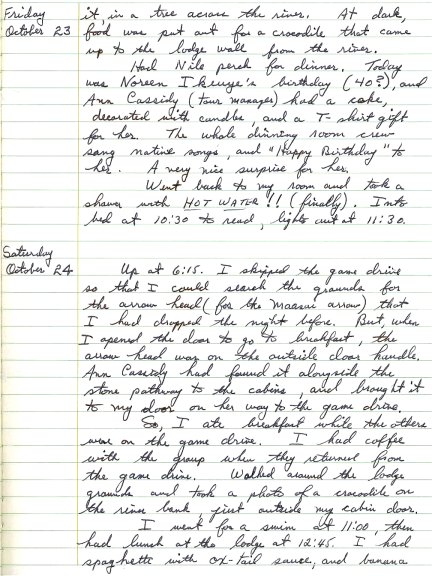 Friday
October 23
it, in a tree across the river. At dark,
food was put out for a crocodile that came
up to the lodge wall from the river.
Had Nile perch for dinner. Today
was Noreen Ikeuye's birthday (40?), and
Ann Cassidy (tour manager) had a cake,
decorated with candles, and a T-shirt gift
for her. The whole dinning room crew
sang native songs, and "Happy Birthday" to
her. A very nice surprise for her.
Went back to my room and took a
shower with HOT WATER!! (finally). Into
bed at 10:30 to read, lights out at 11:30.
Saturday
October 24
Up at 6:15. I skipped the game drive
so that I could search the grounds for
the arrow head (for the Maasai arrow) that
I had dropped the night before. But, when
I opened the door to go to breakfast, the
arrow head was on the outside door handle.
Ann Cassidy had found it alongside the
stone pathway to the cabins, and brought it
to my door on her way to the game drive.
So, I ate breakfast while the others
were on the game drive. I had coffee
with the group when they returned from
the game drive. Walked around the lodge
grounds and took a photo of a crocodile on
the river bank, just outside my cabin door.
I went for a swim at 11:00, then
had lunch at the lodge at 12:45. I had
spaghetti with ox-tail sauce, and banana